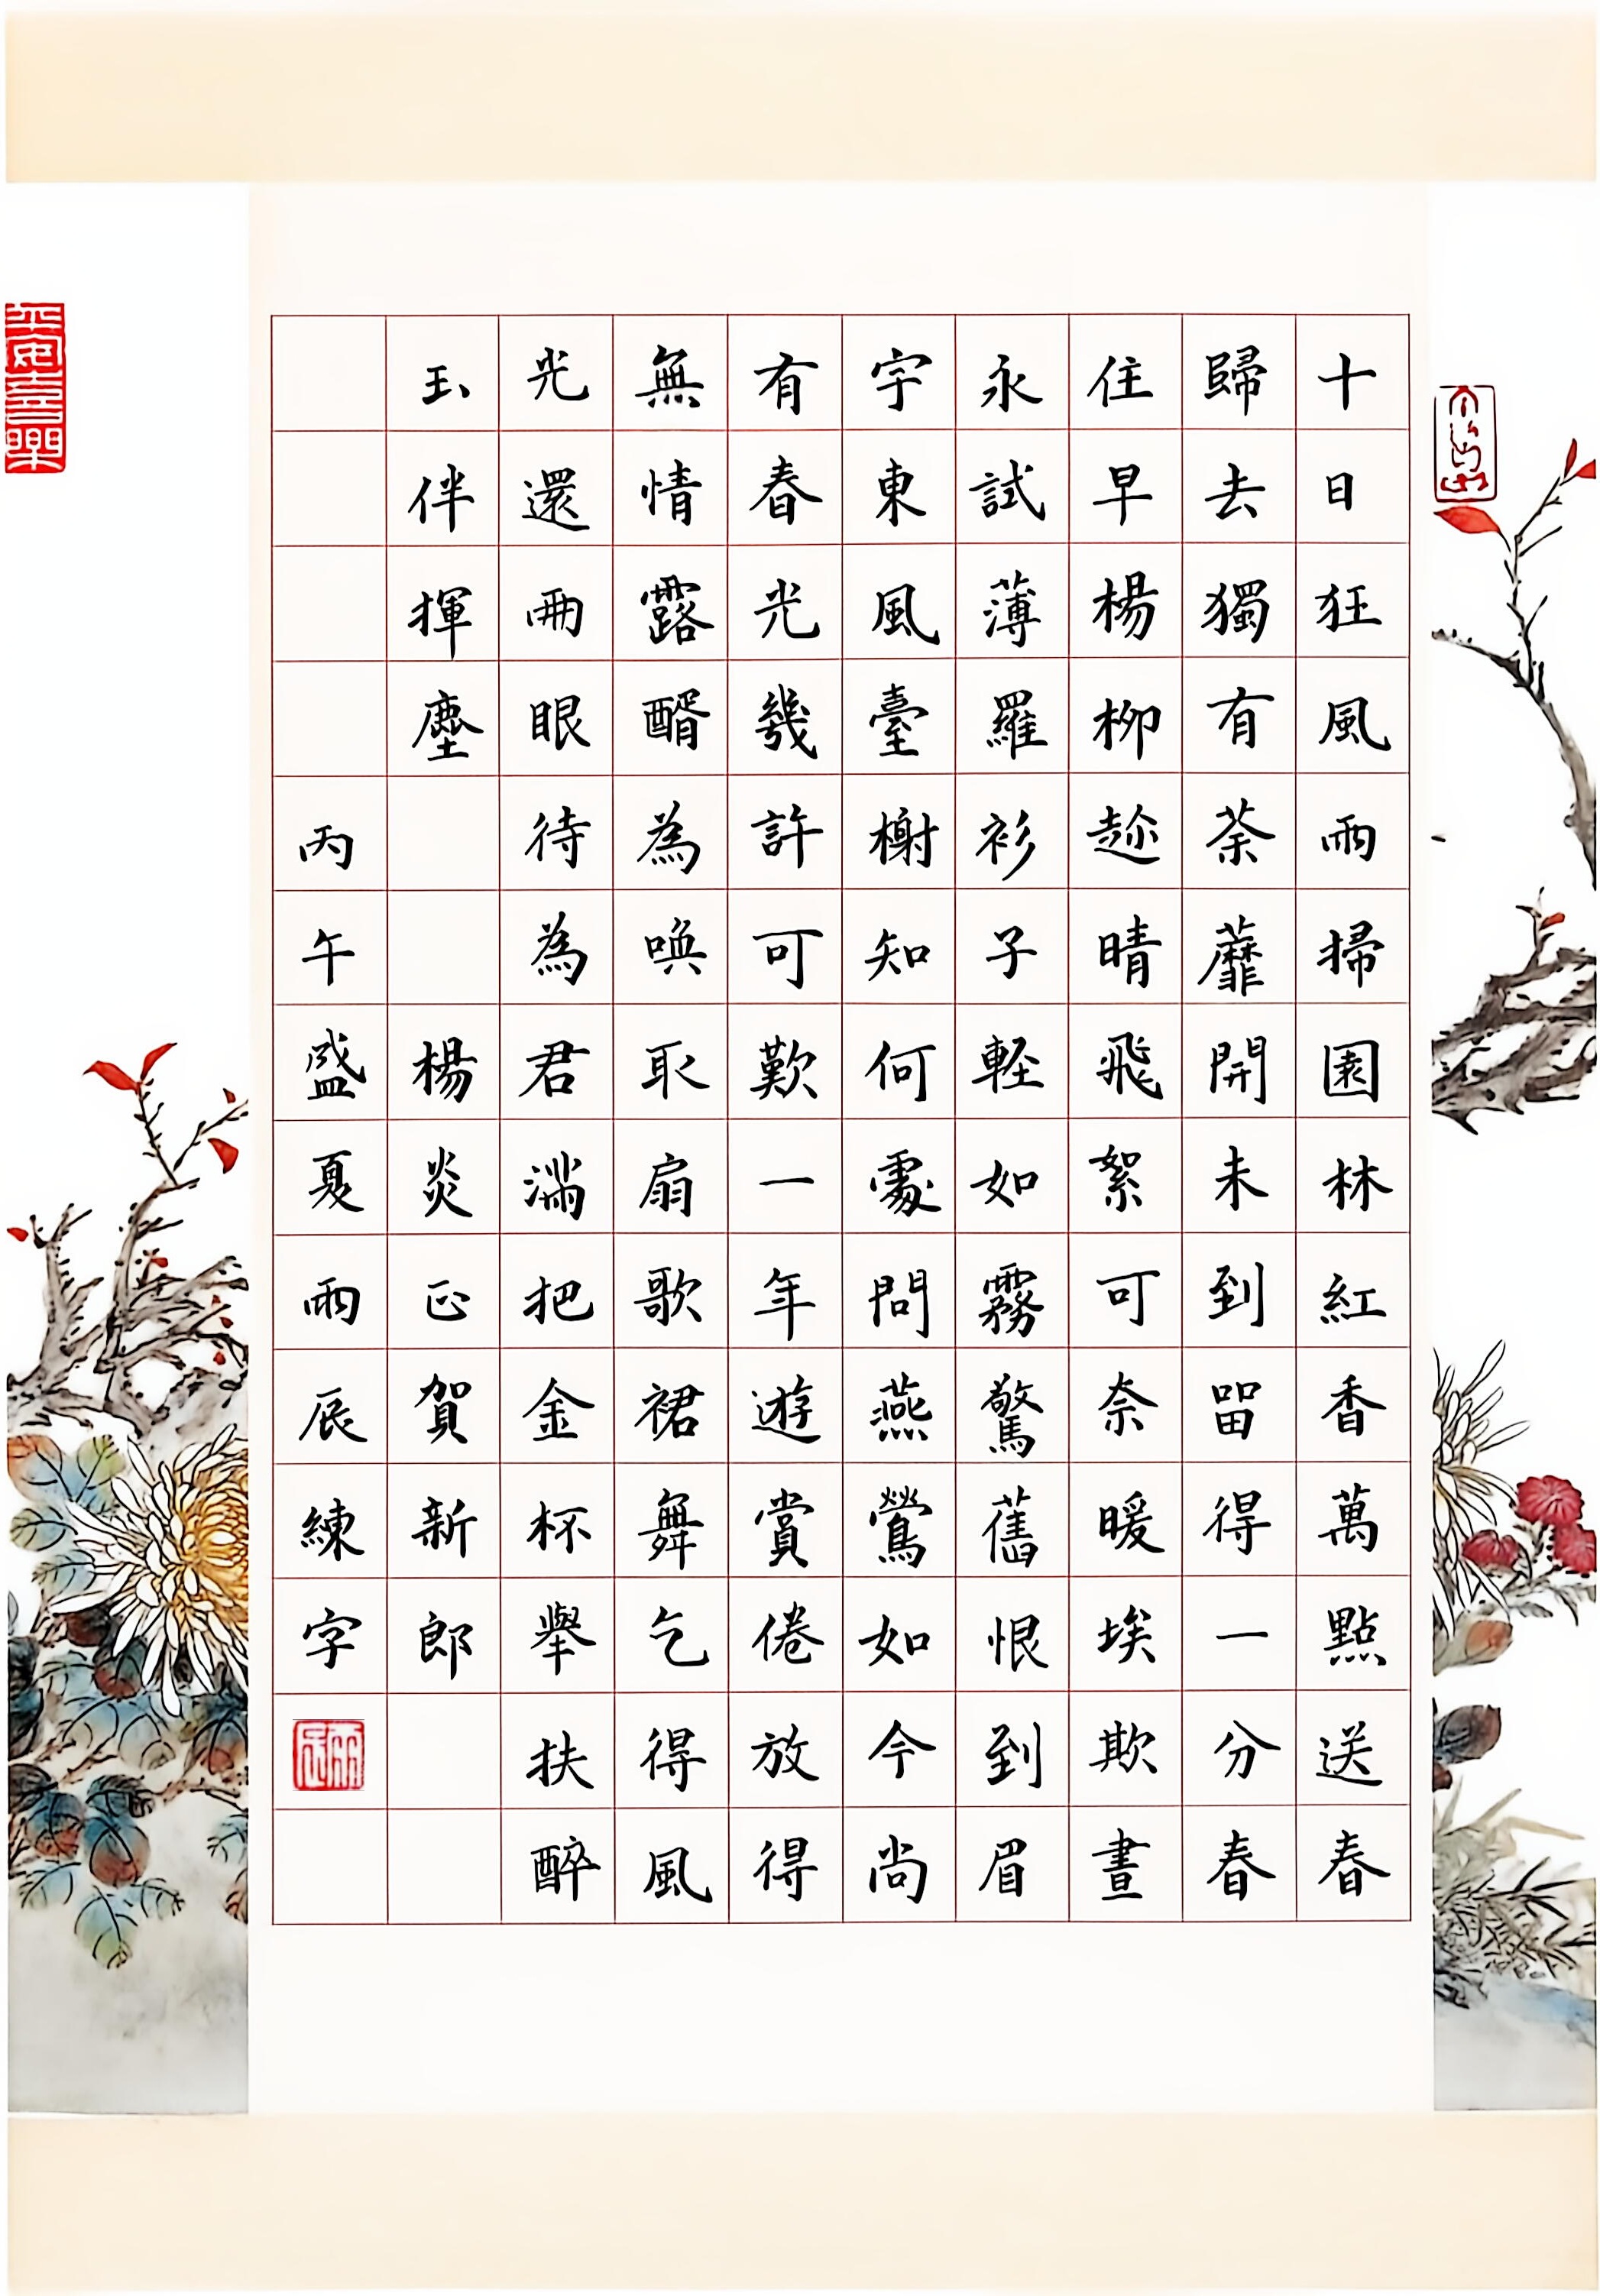 十日狂風雨掃園林紅香萬點送春
歸去獨有荼蘼開未到畱得一分春
住早楊柳趂晴飛絮可奈暖埃欺晝
永試薄羅衫子輕如霧驚舊恨到眉
宇東風臺榭知何處問燕鶯如今尚
有春光幾許可歎一年遊賞倦放得
無情露醑為喚取扇歌裙舞乞得風
光還兩眼待為君滿把金杯舉扶醉
玉伴揮塵 楊炎正賀新郎
丙午盛夏雨辰練字
雨辰
平安喜樂